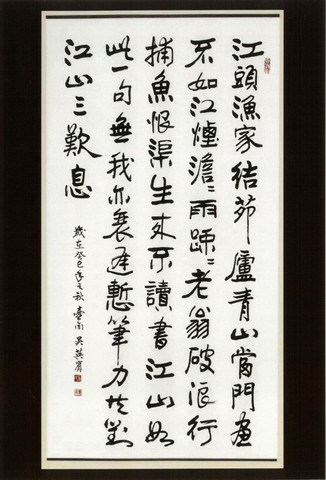 江頭漁家結茆廬青山當門畫
不如江煙澹々雨疎々老翁破浪行
捕魚恨渠生來不讀書江山如
此一句無我亦衰遲慙筆力共對
江山三歎息
歲在癸巳年之秋 臺南 吳英